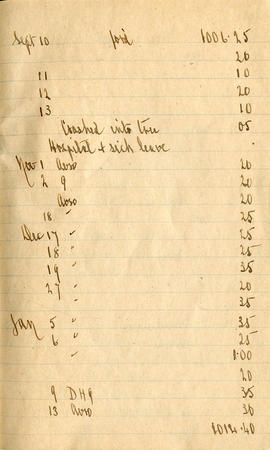 Sept 10 ford 1006.25
20
11 10
12 20
13 10
Crashed into tree 05
Hospital & sick leave
Nov 1 Avro 20
2 9 20
Avro 20
18 " 25
Dec 17 " 25
18 " 25
19 " 35
27 " 20
" 35
Jan 5 " 35
6 " 25
" 1.00
20
9 DH9 35
13 Avro 30
1014.40